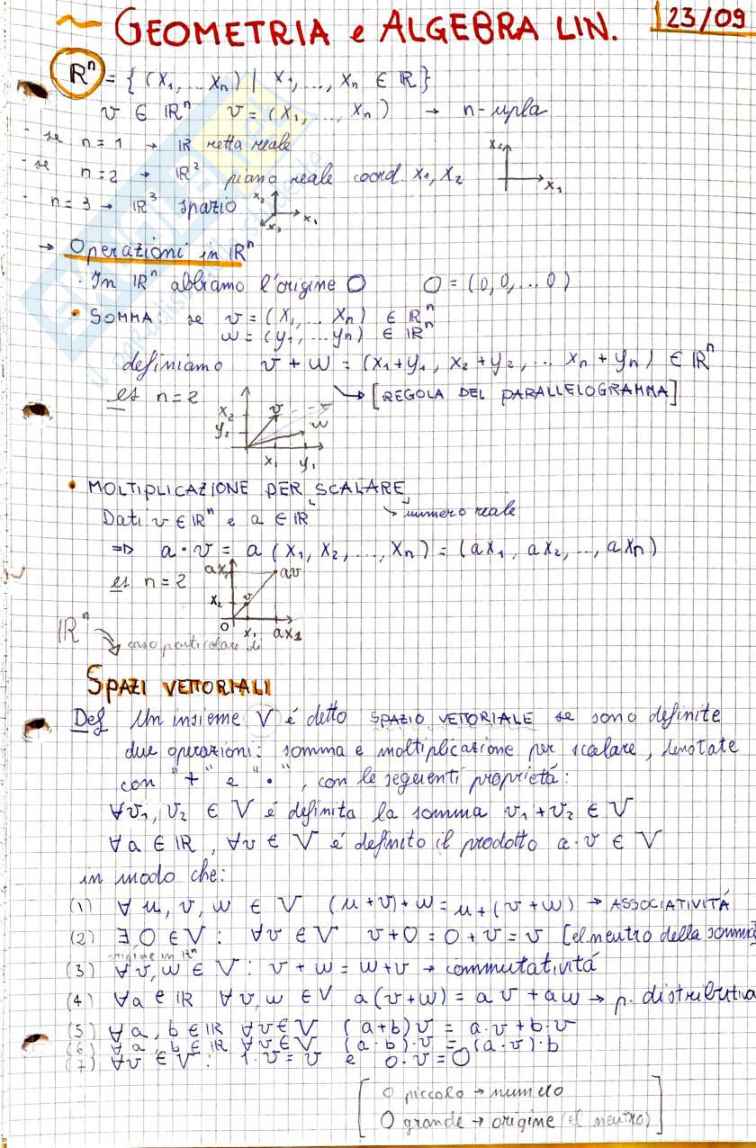 ~ GEOMETRIA e ALGEBRA LIN. 23/09
ℝⁿ = { (x₁, ... xₙ) | x₁, ..., xₙ ∈ ℝ}
v ∈ ℝⁿ v = (x₁, ..., xₙ) → n-upla
- se n = 1 → ℝ retta reale
- se n = 2 → ℝ² piano reale coord. x₁, x₂
- n = 3 → ℝ³ spazio
→ Operazioni in ℝⁿ
· In ℝⁿ abbiamo l'origine O O = (0,0,...0)
• SOMMA: se v = (x₁, ... xₙ) ∈ ℝⁿ
w = (y₁, ... yₙ) ∈ ℝⁿ
definiamo v + w = (x₁+y₁, x₂+y₂, ... xₙ+yₙ) ∈ ℝⁿ
es n=2 → [REGOLA DEL PARALLELOGRAMMA]
x₂ v
y₁ w
x₁ y₁
• MOLTIPLICAZIONE PER SCALARE
Dati v ∈ ℝⁿ e a ∈ ℝ → numero reale
⇒ a · v = a (x₁, x₂, ..., xₙ) = (ax₁, ax₂, .., axₙ)
es n=2
av
x₂ v
O x₁ ax₁
ℝⁿ
→ caso particolare di
SPAZI VETTORIALI
Def Un insieme V é detto SPAZIO VETORIALE se sono definite
due operazioni: somma e moltiplicazione per scalare, denotate
con "+" e "•", con le seguenti proprietá:
∀v₁, v₂ ∈ V é definita la somma v₁ + v₂ ∈ V
∀a ∈ ℝ, ∀v ∈ V é definito il prodotto a·v ∈ V
in modo che:
(1) ∀ u, v, w ∈ V (u+v)+w = u+(v+w) → ASSOCIATIVITÁ
(2) ∃ O ∈ V: ∀v ∈ V v+O = O+v = v [el neutro della somma]
origine in ℝⁿ
(3) ∀ v, w ∈ V: v + w = w + v → commutativitá
(4) ∀a ∈ ℝ ∀v, w ∈ V a(v+w) = av + aw → p. distributiva
(5) ∀ a, b ∈ ℝ ∀v ∈ V (a+b)v = a·v + b·v
(6) ∀ a, b ∈ ℝ ∀v ∈ V (a·b)·v = (a·v)·b
(7) ∀v ∈ V: 1·v = v e 0·v = O
[0 piccolo → numero
O grande → origine (el neutro)]